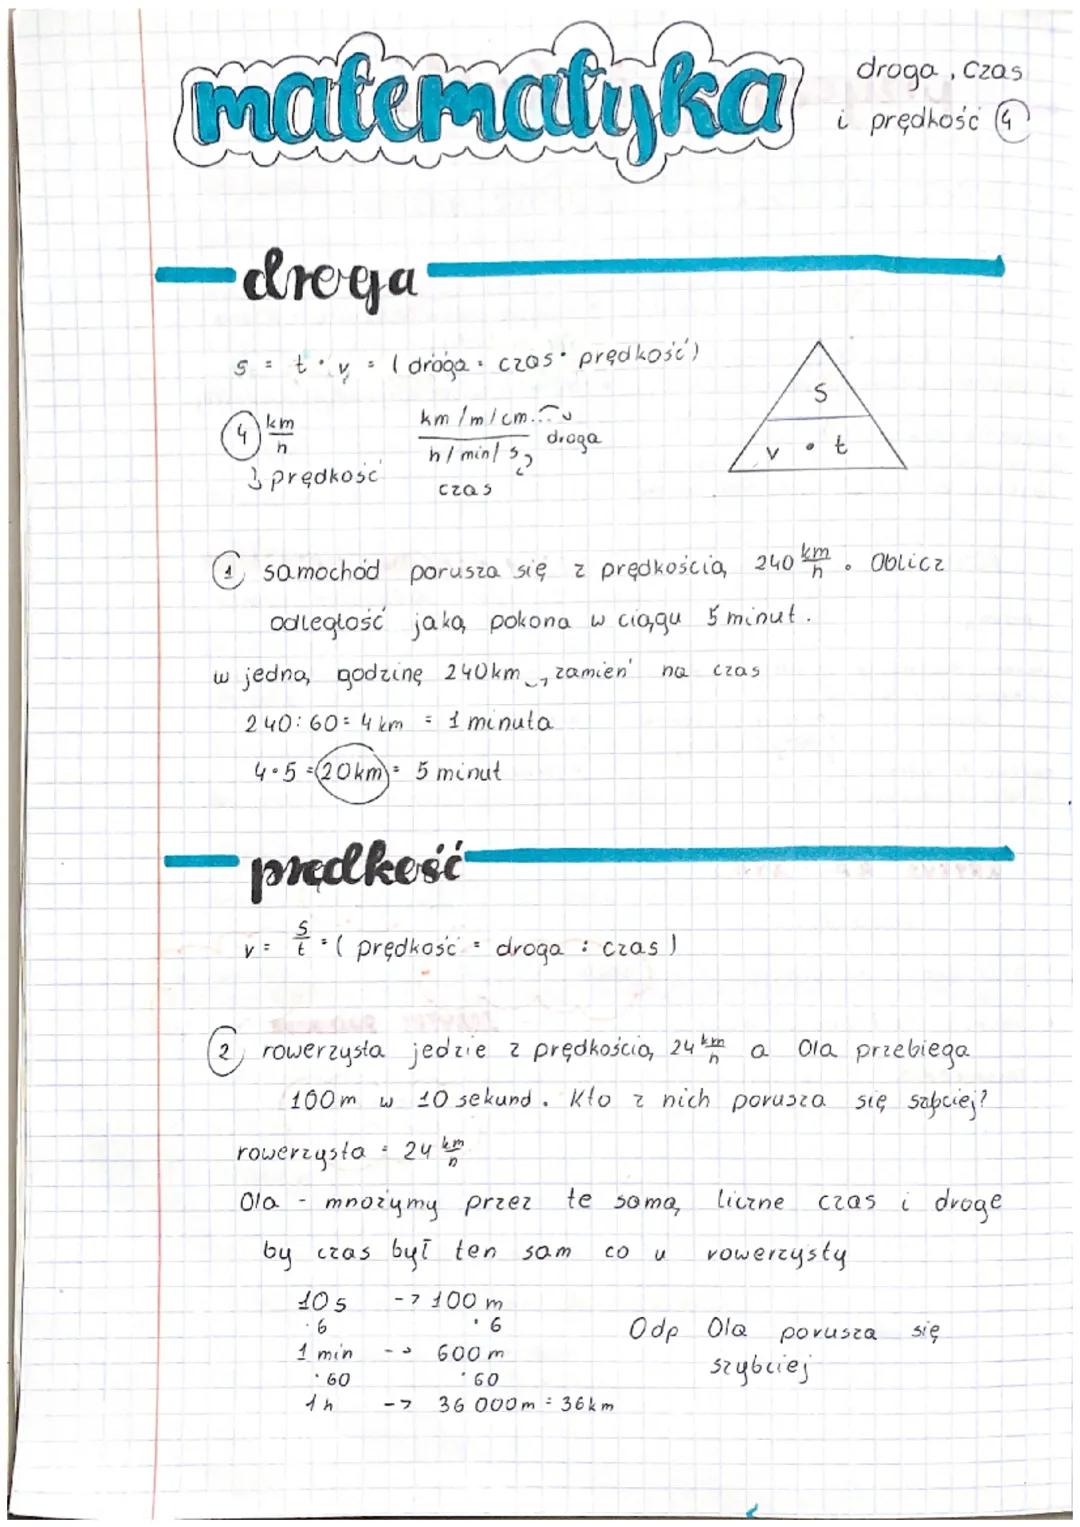 matematyka
droga, czas
i prędkość 4
droga
s = t · v = ( droga = czas · prędkość )
S
v · t
4 km/h
prędkość
km/m/cm... droga
h/min/s
czas
1 samochód porusza się z prędkością 240 km/h. Oblicz
odległość jaką pokona w ciągu 5 minut.
w jedną godzinę 240km zamień na czas
240:60 = 4 km = 1 minuta
4·5 = 20km = 5 minut
prędkość
v = s/t = ( prędkość = droga : czas )
2 rowerzysta jedzie z prędkością 24 km/h a Ola przebiega
100m w 10 sekund. Kto z nich porusza się szbciej?
rowerzysta = 24 km/h
Ola - mnożymy przez te samą liczne czas i droge
by czas był ten sam co u rowerzysty
10s -> 100 m
·6 ·6
1 min -> 600 m
·60 ·60
1h -> 36 000m = 36km
Odp Ola porusza się
szybciej